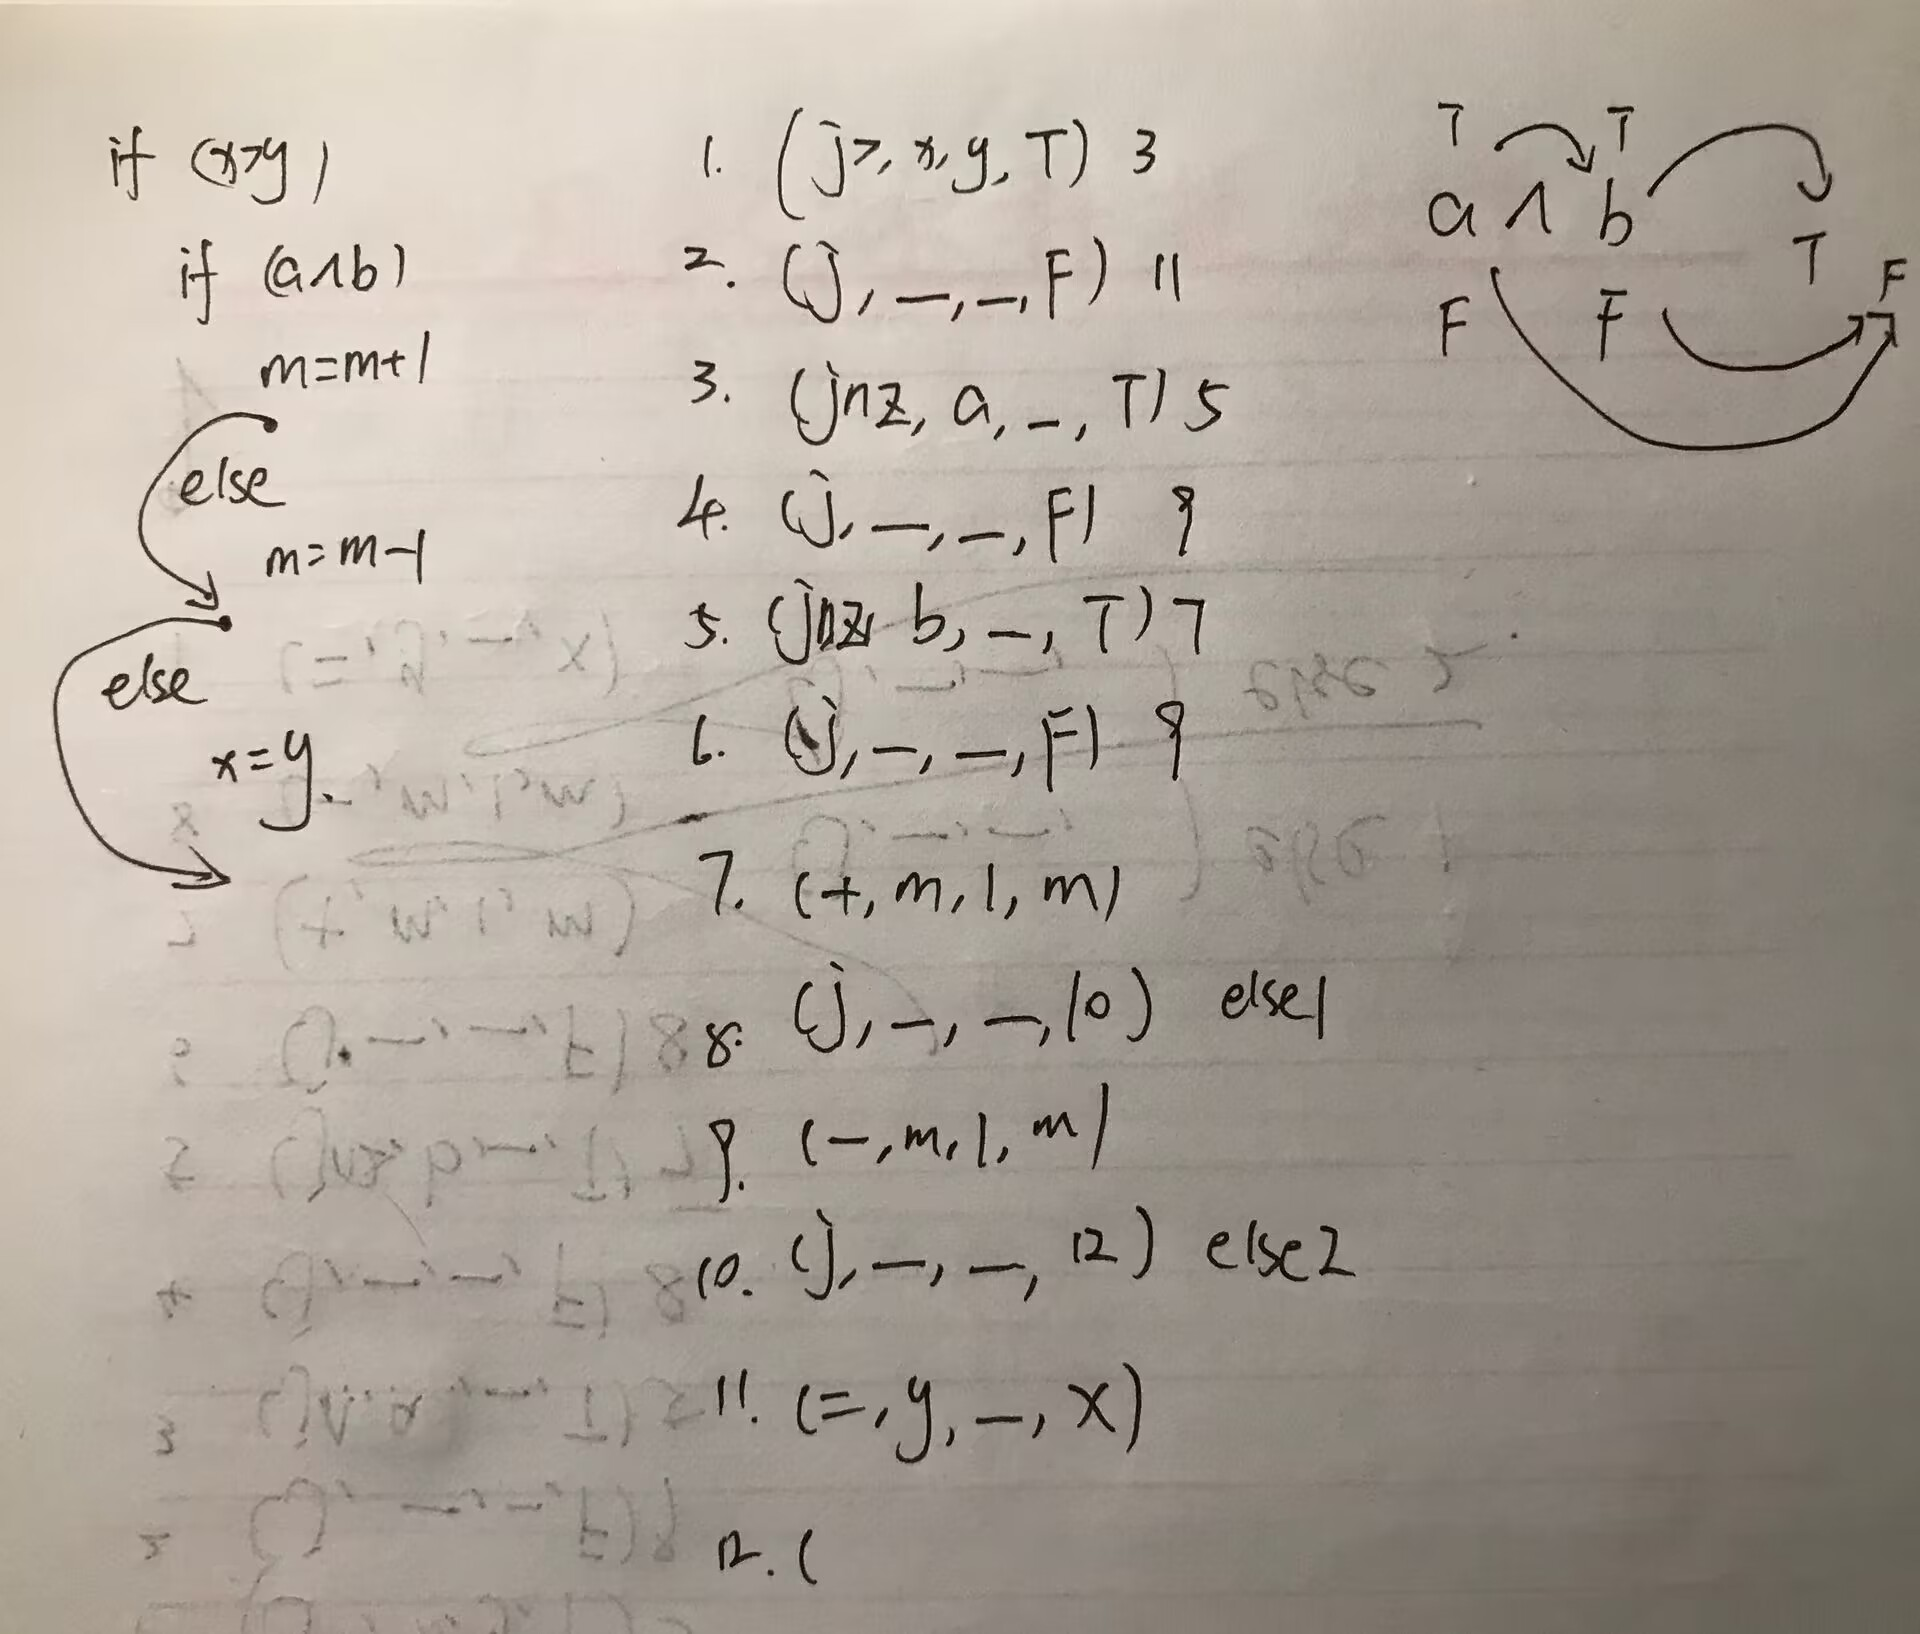 if (x>y)
if (a∧b)
m=m+1
else
m=m-1
else
x=y.
1. (j>, x, y, T) 3
2. (j, _, _, F) 11
3. (jnz, a, _, T) 5
4. (j, _, _, F) 9
5. (jnz, b, _, T) 7
6. (j, _, _, F) 9
7. (+, m, 1, m)
8. (j, _, _, 10) else1
9. (-, m, 1, m)
10. (j, _, _, 12) else2
11. (=, y, _, x)
12. (
T T
a ∧ b
T F
F F